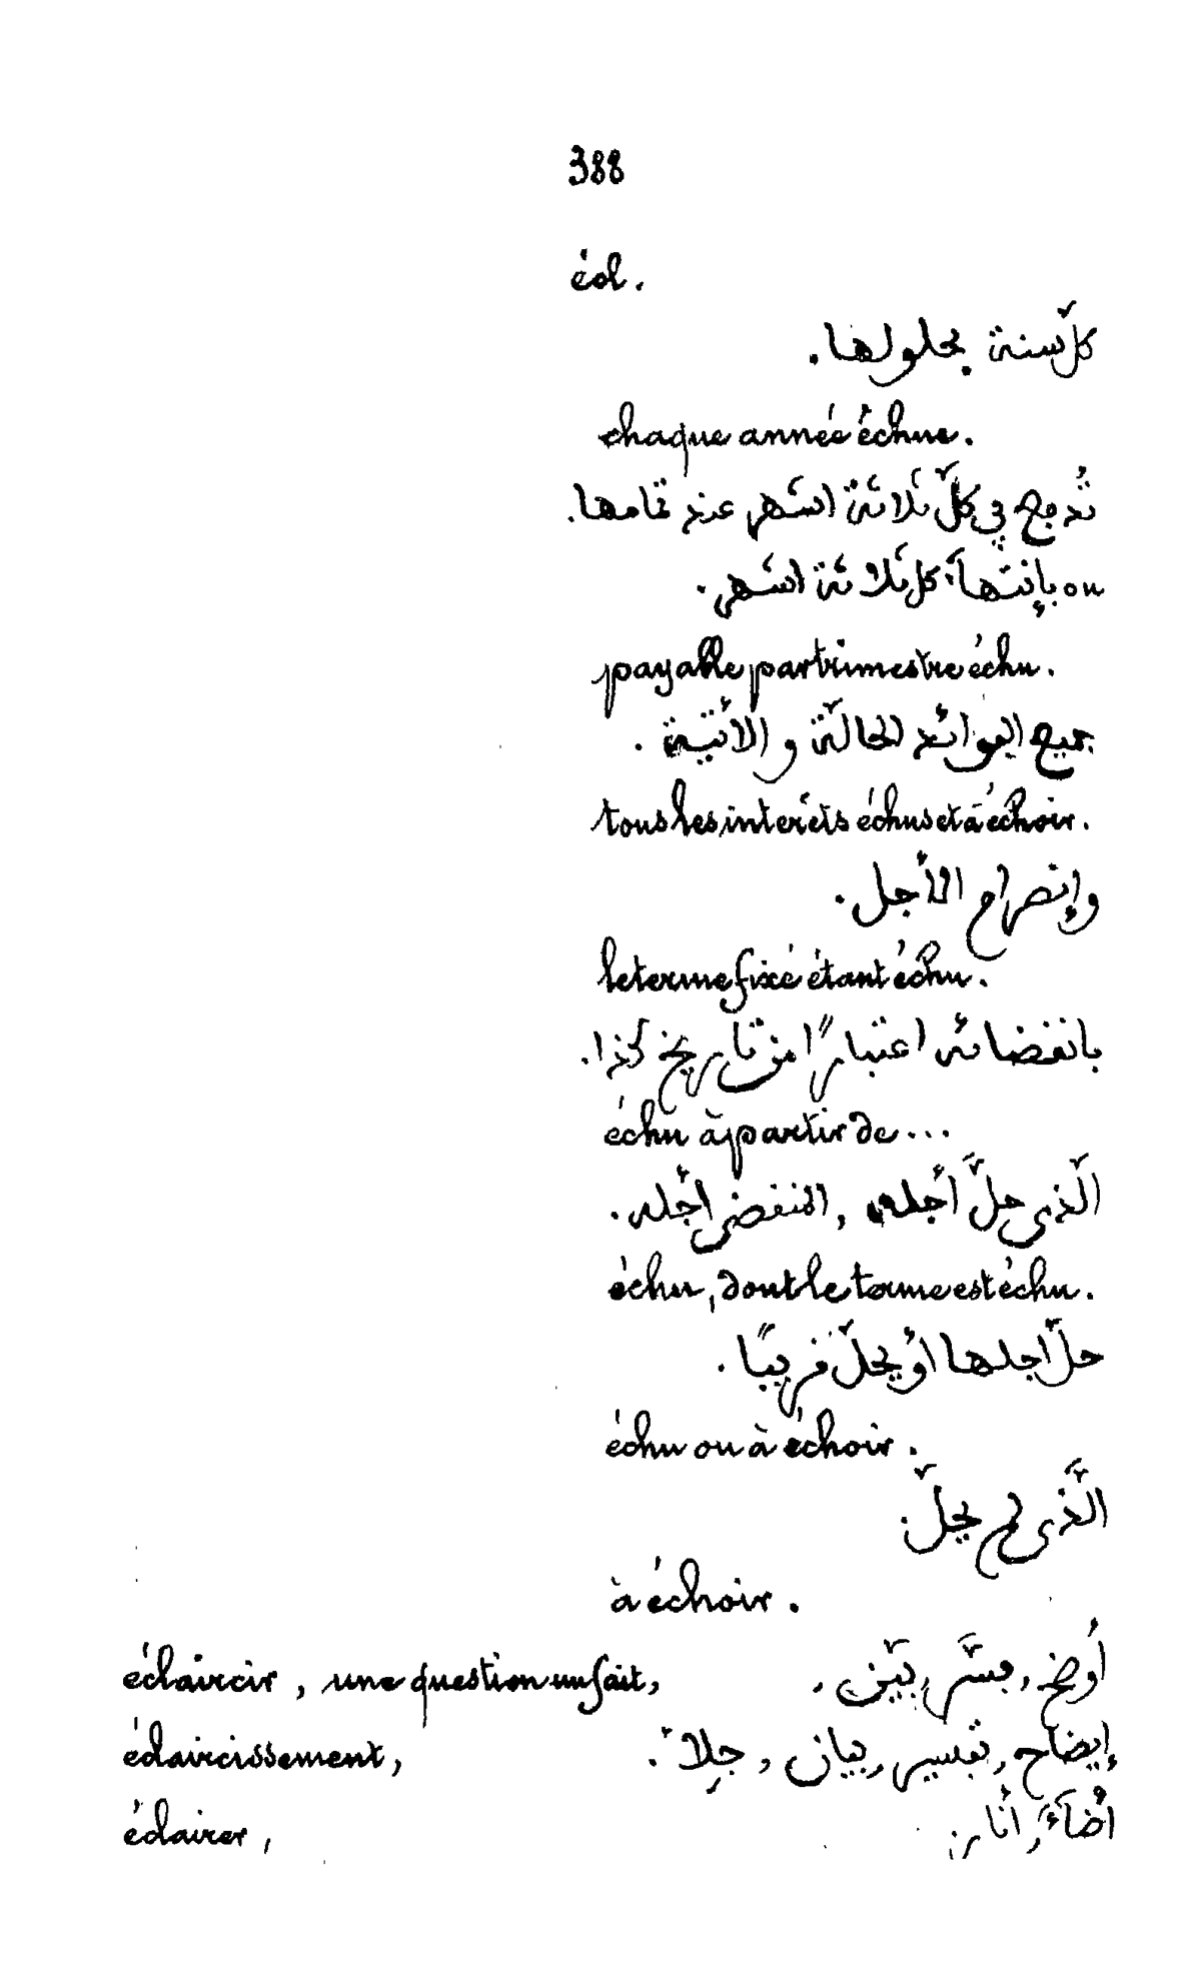 388
écl.
كلّ سنة بحلولها.
chaque année échue.
تُدفع في كلّ ثلاثة اشهر عند تمامها.
ou بإنتهآء كل ثلاثة اشهر.
payable par trimestre échu.
جميع الفوائد الحالّة و الأتية.
tous les intérêts échus et à échoir.
وإنصرام الأجل.
le terme fixé étant échu.
بانقضائه اعتبارًا من تاريخ كذا.
échu à partir de...
الّذى حلَّ أجله, المنقضى أجله.
échu, dont le terme est échu.
حلّ اجلها أو يحلّ قريبًا.
échu ou à échoir.
الّذى لم يحلّ.
à échoir.
éclaircir, une question un fait, أوضح, فسَّر, بيّن,
éclaircissement, إيضاح, تفسير, بيان, جلاء.
éclairer, أضآءَ, أنار.